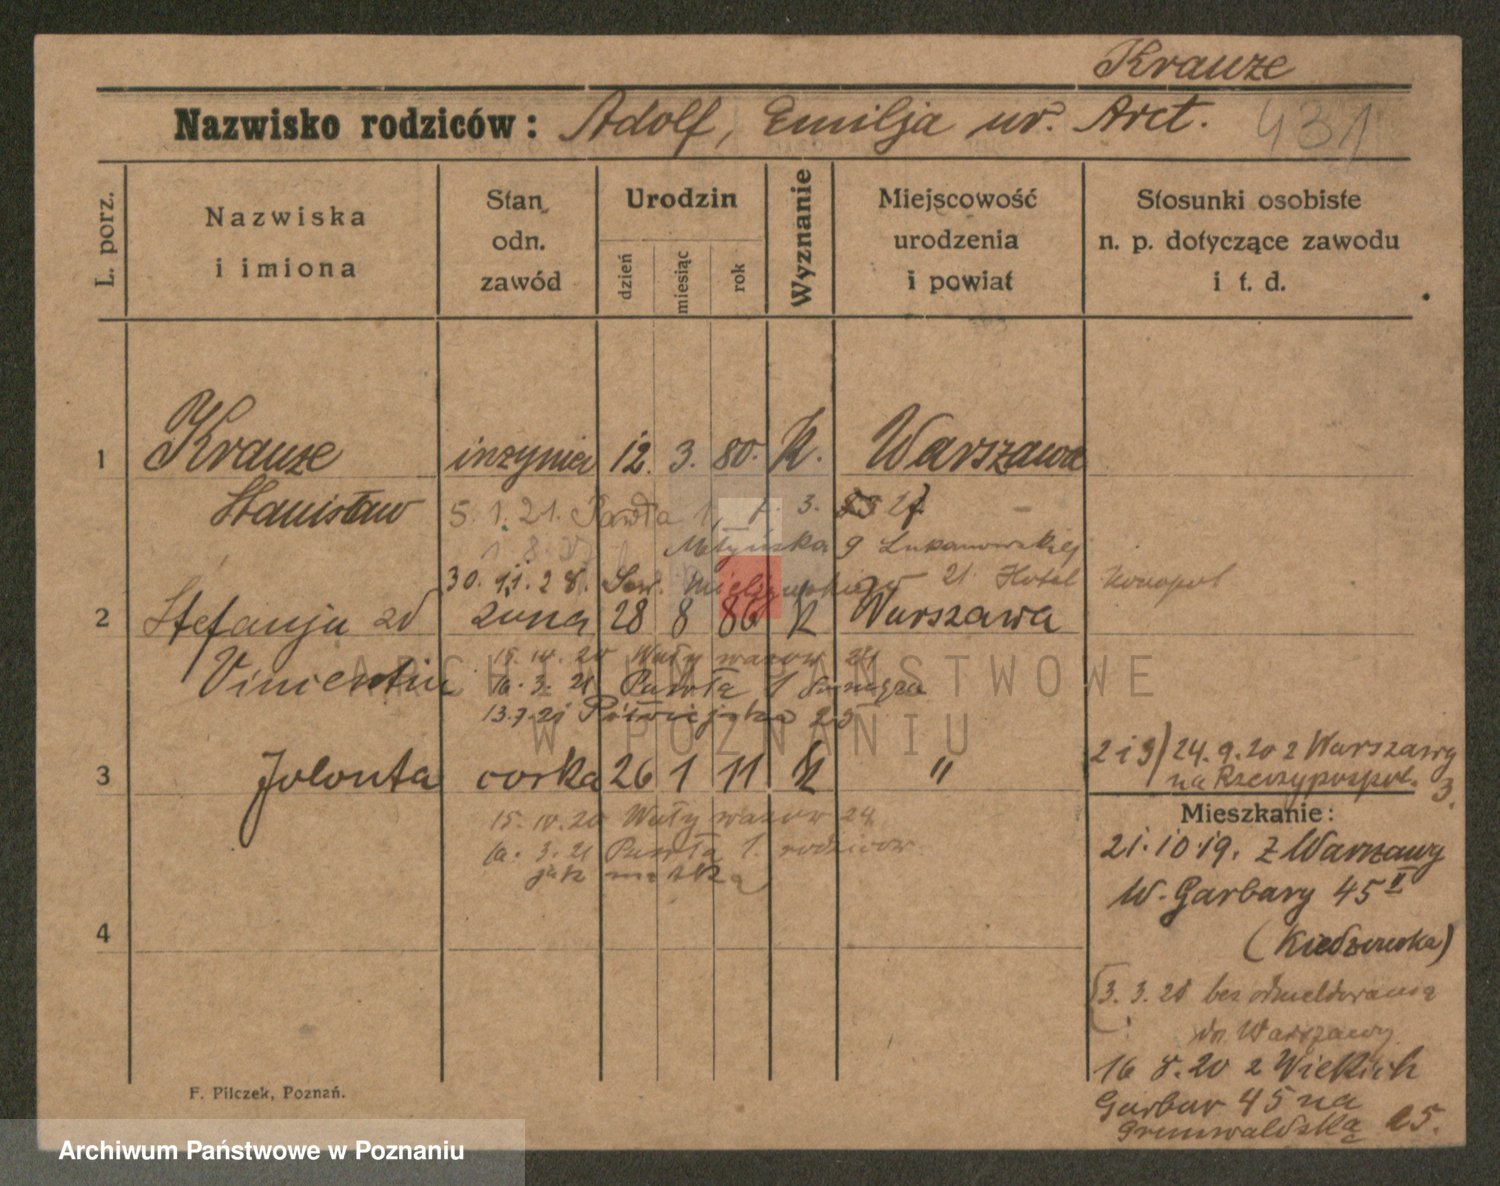 Krauze
Nazwisko rodziców: Adolf, Emilja ur. Arct. 431
L. porz.
Nazwiska i imiona
Stan odn. zawód
Urodzin
dzień
miesiąc
rok
Wyznanie
Miejscowość urodzenia i powiat
Stosunki osobiste n. p. dotyczące zawodu i t. d.
1 Krauze inżynier 12. 3. 80. K. Warszawa
Stanisław 5. 1. 21. Pawła 1
Młyńska 9 Łukanowskiej
30. 11. 28. Sew. Mielżyńskiego 21 Hotel
2 Stefanja zd żona 28 8 86 K Warszawa
Vincentin
15. 10. 20 Wały wazow 24
16. 3. 21 Pawła 1
13.7.21 Półwiejska 25
3 Jolonta corka 26 1 11 K "
15. 10. 20 Wały wazow 24
16. 3. 21 Pawła 1. rodzicow
jak matka
4
2 i 3) 24. 9. 20 z Warszawy
na Rzeczypospol. 3.
Mieszkanie:
21. 10 19. z Warszawy
W. Garbary 45 II
3. 3. 20 bez odmeldowania
do Warszawy
16 8. 20 z Wielkich
Garbar 45 na
Grunwaldzką 25.
F. Pilczek, Poznań.
ARCHIWUM PAŃSTWOWE
W POZNANIU
Archiwum Państwowe w Poznaniu